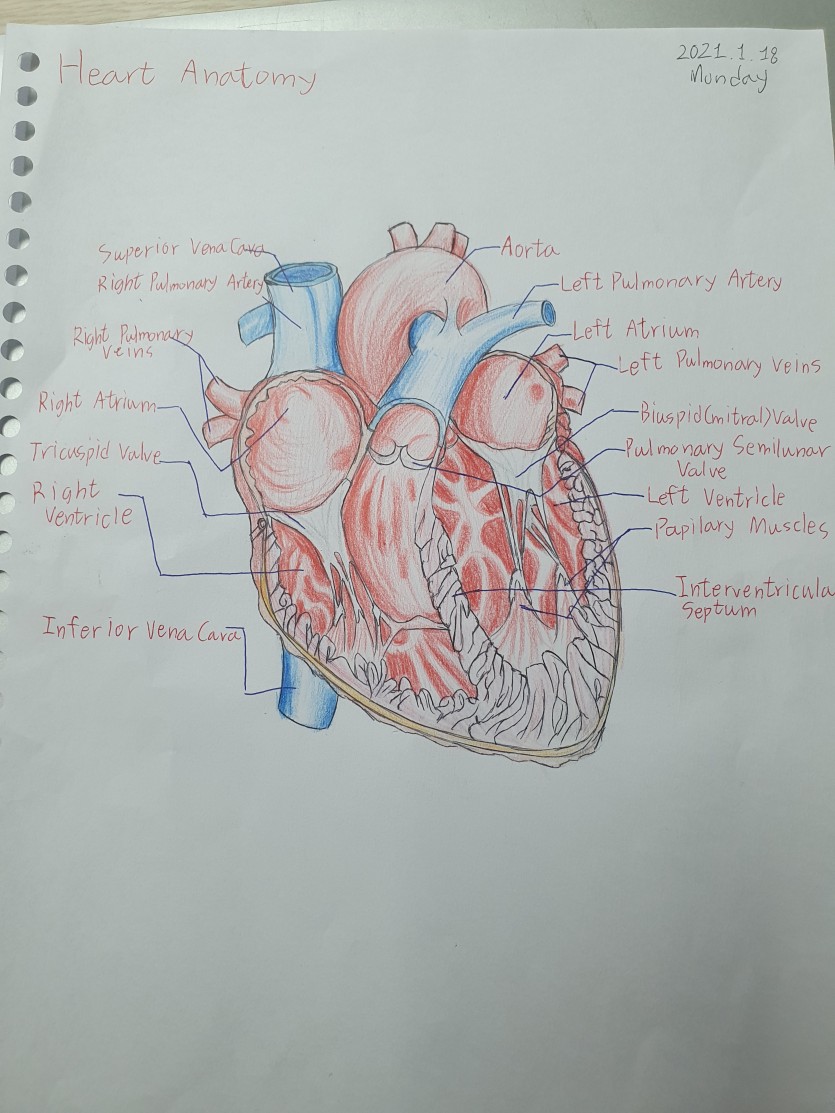 Heart Anatomy
2021.1.18
Monday
Superior Vena Cava
Right Pulmonary Artery
Right Pulmonary
Veins
Right Atrium
Tricuspid Valve
Right
Ventricle
Inferior Vena Cava
Aorta
Left Pulmonary Artery
Left Atrium
Left Pulmonary Veins
Biuspid(mitral)Valve
Pulmonary Semilunar
Valve
Left Ventricle
Papilary Muscles
Interventricula
Septum